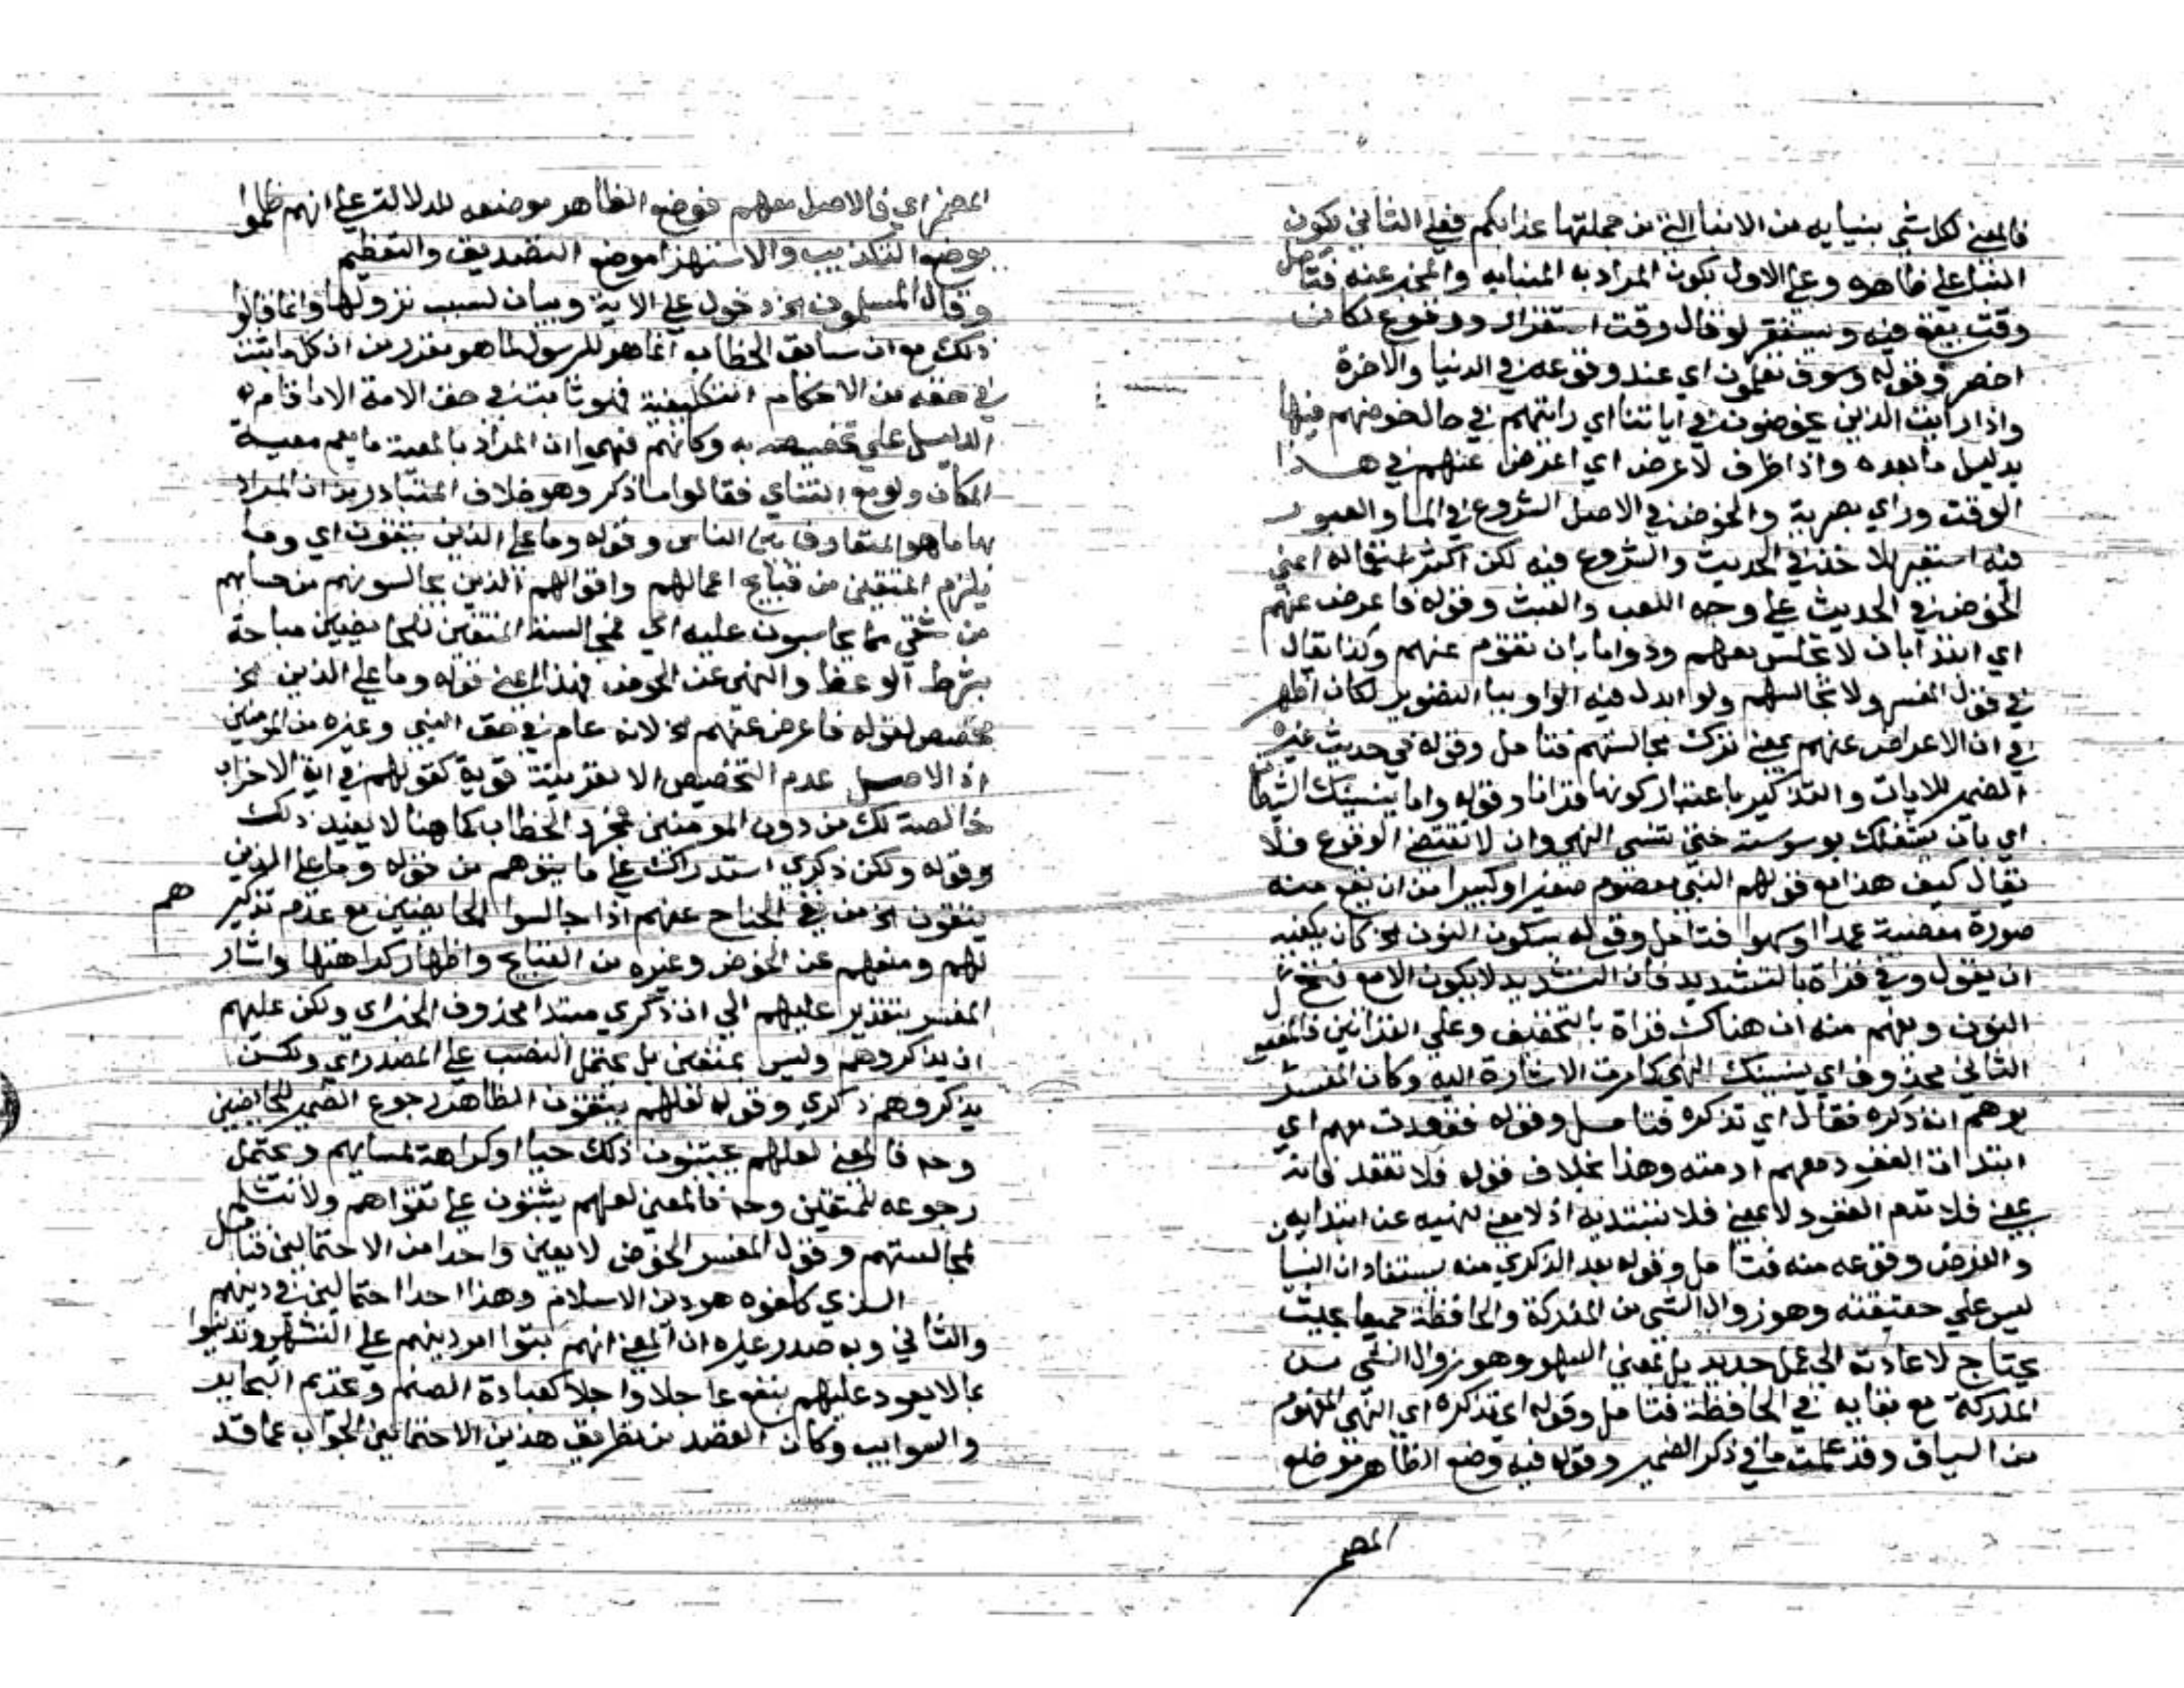 فالمعنى لكل شي ينبا به من الانبا التي من جملتها عذابكم فعلى الثاني يكون
النبا على ظاهره وعلى الاول يكون المراد به المنبا به والمخبر عنه فتامل
وقت يقع فيه ويستقر لو قال وقت استقرار ووقوع لكان
اخصر وقوله وسوف تعلمون اي عند وقوعه في الدنيا والاخرة
واذا رايت الذين يخوضون في اياتنا اي رايتهم في حال خوضهم فيها
بدليل ما بعده واذا ظرف لاعرض اي اعرض عنهم في هذا
الوقت وراي بصرية والخوض في الاصل الشروع في الما والعبور
فيه استعير للاخذ في الحديث والشروع فيه لكن اكثر استعماله اعني
الخوض في الحديث على وجه اللعب والعبث وقوله فاعرض عنهم
اي ابتدا بان لا تجلس معهم ودواما بان تقوم عنهم وكذا يقال
في قول المفسر ولا تجالسهم ولو ابدل فيه الواو ببا التصوير لكان اظهر
في ان الاعراض عنهم بمعنى ترك مجالستهم فتامل وقوله في حديث غيره
الضمير للايات والتذكير باعتبار كونها قرانا وقوله واما ينسينك الشيطان
اي بان يشغلك بوسوسته حتى تنسى النهي وان لا تقتضي الوقوع فلا
يقال كيف هذا مع قولهم النبي معصوم صغيرا وكبيرا من ان يقع منه
صورة معصية عمدا او سهوا فتامل وقوله بسكون النون الخ كان يكفيه
ان يقول وفي قراة بالتشديد فان التشديد لا يكون الا مع فتح
النون ويفهم منه ان هناك قراة بالتخفيف وعلى القراتين فالمفعول
الثاني محذوف اي ينسينك النهي كما مرت الاشارة اليه وكان المفسر
يوهم انه ذكره فقال اي تذكره فتامل وقوله فقعدت معهم اي
ابتدات القعود معهم او دمته وهذا بخلاف قوله فلا تقعد فانه
بمعنى فلا تدم القعود لا بمعنى فلا تبتديه اذ لا معنى لنهيه عن ابتدايه
والغرض وقوعه منه فتامل وقوله بعد الذكرى منه يستفاد ان النسيا
ليس على حقيقته وهو زوال الشي من المدركة والحافظة جميعا بحيث
يحتاج لاعادته الى عمل جديد بل بمعنى السهو وهو زوال الشي من
المدركة مع بقايه في الحافظة فتامل وقوله اي تذكره اي النهي المفهوم
من السياق وقد علمت ما في ذكر الضمير وقوله فيه وضع الظاهر موضع
المضم
المضمر اي في الاصل معهم فوضع الظاهر موضعه للدلالة على انهم ظلموا
بوضع التكذيب والاستهزا موضع التصديق والتعظيم
وقال المسلمون الخ دخول على الاية وبيان لسبب نزولها وانما قالوا
ذلك مع ان سابق الخطاب انما هو للرسول لما هو مقرر من ان كل ما يثبت
في حقه من الاحكام التكليفية فهو ثابت في حق الامة الا ما قام
الدليل على تخصيصه به وكانهم فهموا ان المراد بالمعية ما يعم معية
المكان ولو مع التناي فقالوا ما ذكر وهو خلاف المتبادر من ان المراد
بها ما هو المتعارف بين الناس وقوله وما على الذين يتقون اي وما
يلزم المتقين من قبايح اعمالهم واقوالهم الذين يجالسونهم من حسابهم
من شي مما يحاسبون عليه اي فمجالسة المتقين للخايضين مباحة
بشرط الوعظ والنهي عن الخوض فهذا اعني قوله وما على الذين الخ
مخصص لقوله فاعرض عنهم الخ لانه عام في حق النبي وغيره من المومنين
اذ الاصل عدم التخصيص الا بقرينة قوية كقوله في اية الاحزاب
خالصة لك من دون المومنين فمجرد الخطاب كما هنا لا يفيد ذلك
وقوله ولكن ذكرى استدراك على ما يتوهم من قوله وما على الذين
يتقون الخ من نفي الجناح عنهم اذا جالسوا الخايضين مع عدم تذكير
هم
لهم ومنعهم عن الخوض وغيره من القبايح واظهار كراهتها واشار
المفسر بتقدير عليهم الى ان ذكرى مبتدا محذوف الخبر اي ولكن عليهم
ان يذكروهم وليس بمتعين بل يحتمل النصب على المصدر اي ولكن
يذكروهم ذكرى وقوله لعلهم يتقون الظاهر رجوع الضمير للخايضين
وحه فالمعنى لعلهم يجتنبون ذلك حيا او كراهة لمساتهم ويحتمل
رجوعه للمتقين وحه فالمعنى لعلهم يثبتون على تقواهم ولا تنثلم
لمجالستهم وقول المفسر الخوض لا يعين واحدا من الاحتمالين فتامل
الذي كلفوه هو دين الاسلام وهذا احد احتمالين في دينهم
والثاني وبه صدر غيره ان المعنى انهم بنوا امر دينهم على التشهي وتدينوا
بما لا يعود عليهم بنفع عاجلا واجلا كعبادة الصنم وتحريم البحاير
والسوايب وكان القصد من تطريق هذين الاحتمالين الجواب عما قد